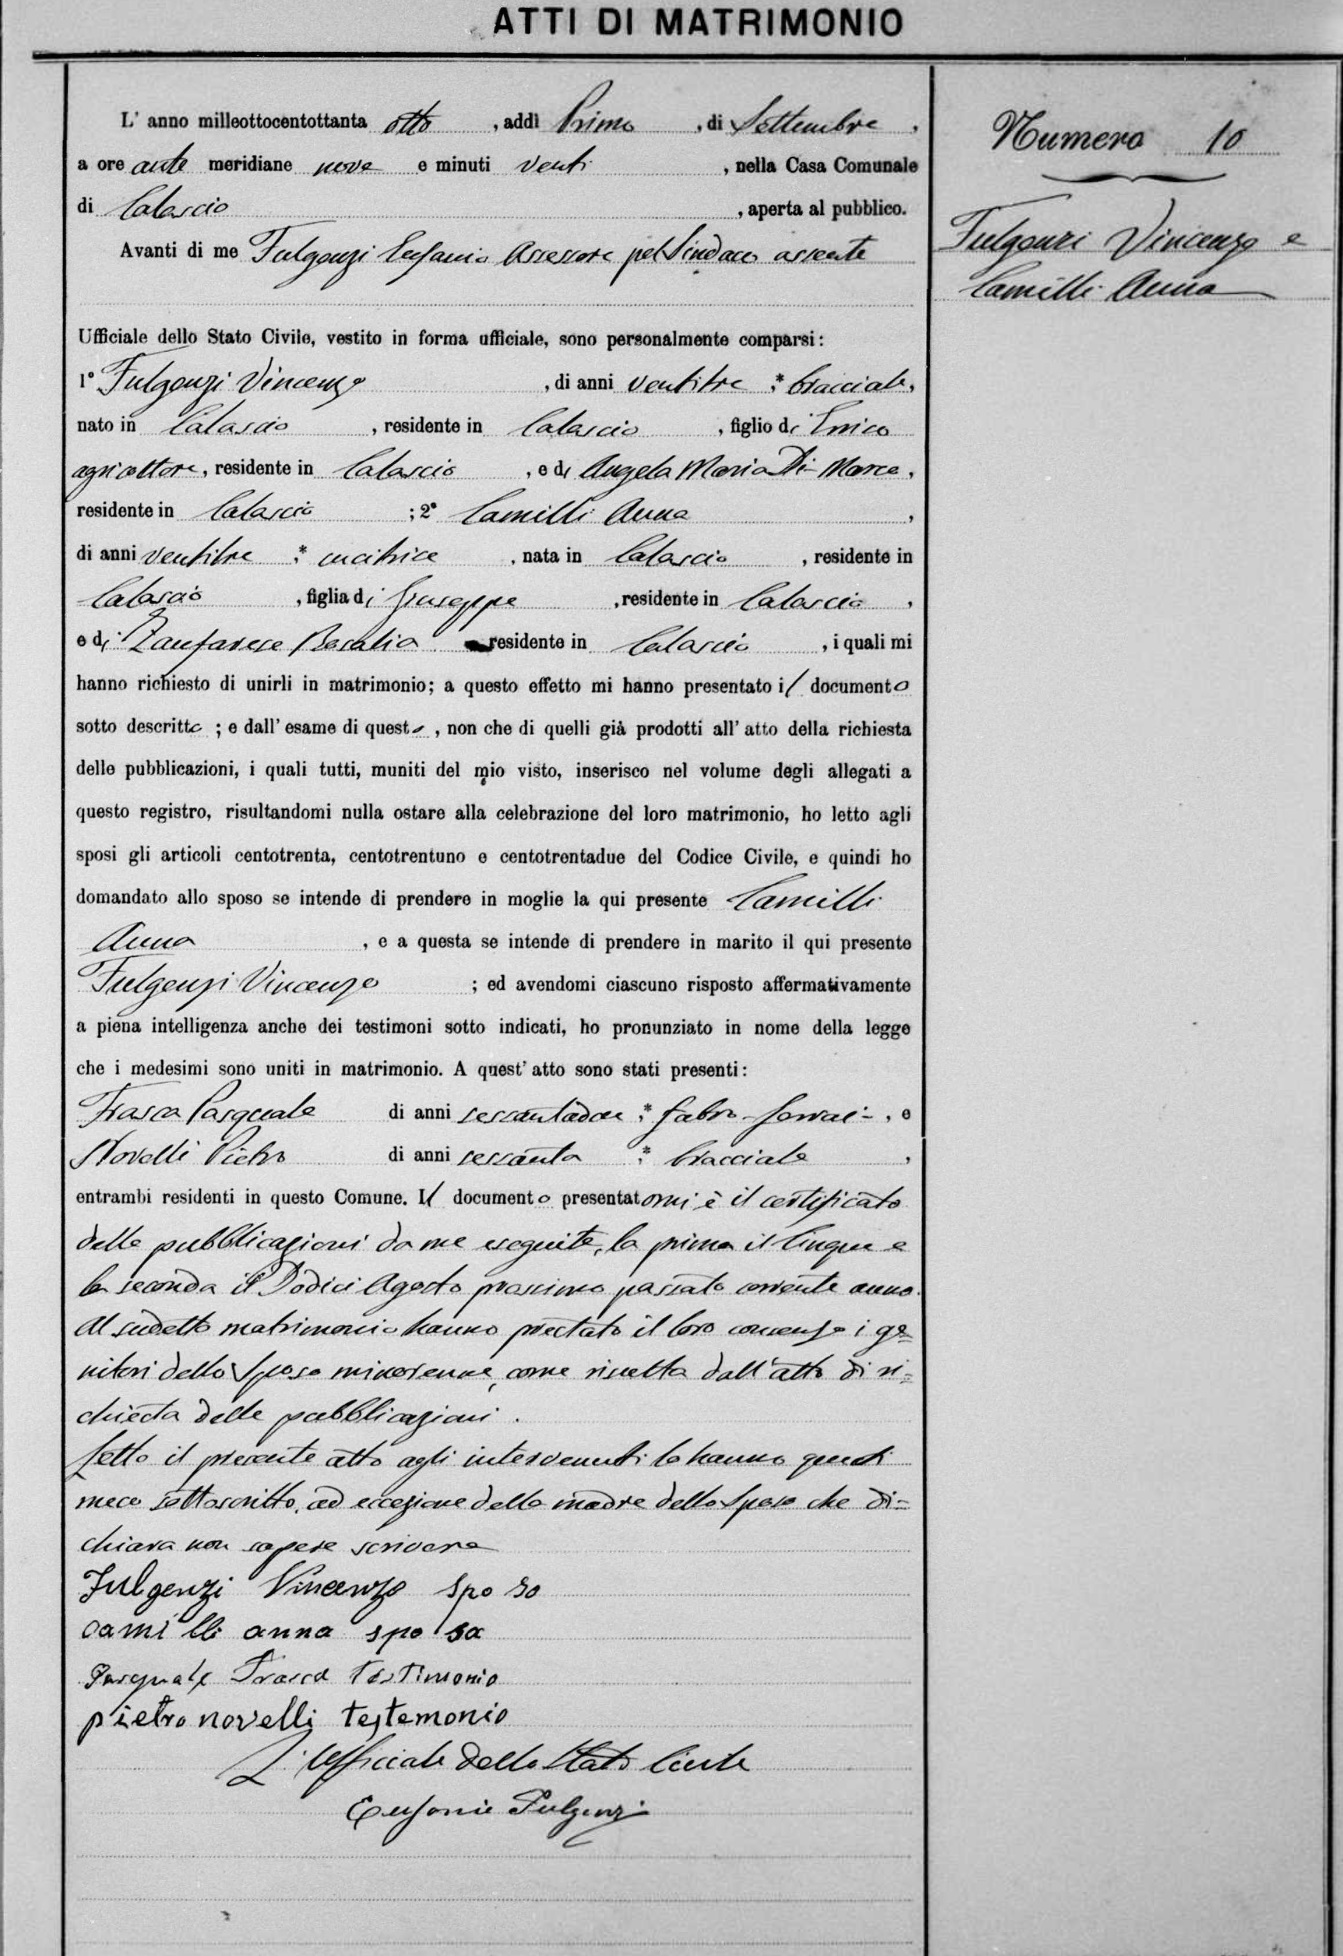 ATTI DI MATRIMONIO
L' anno milleottocentottanta otto , addì Primo , di Settembre ,
a ore ante meridiane nove e minuti venti , nella Casa Comunale
di Calascio , aperta al pubblico.
Avanti di me Fulgenzi Eufanio Assessore pel Sindaco assente
Ufficiale dello Stato Civile, vestito in forma ufficiale, sono personalmente comparsi:
1° Fulgenzi Vincenzo , di anni ventitre ,* bracciale,
nato in Calascio , residente in Calascio , figlio di Enrico
agricoltore, residente in Calascio , e di Angela Maria Di Marco,
residente in Calascio ; 2° Camilli Anna ,
di anni ventitre ,* cucitrice , nata in Calascio , residente in
Calascio , figlia di Giuseppe , residente in Calascio ,
e di Zanfarese Rosalia residente in Calascio , i quali mi
hanno richiesto di unirli in matrimonio; a questo effetto mi hanno presentato il documento
sotto descritto ; e dall' esame di questo , non che di quelli già prodotti all' atto della richiesta
delle pubblicazioni, i quali tutti, muniti del mio visto, inserisco nel volume degli allegati a
questo registro, risultandomi nulla ostare alla celebrazione del loro matrimonio, ho letto agli
sposi gli articoli centotrenta, centotrentuno e centotrentadue del Codice Civile, e quindi ho
domandato allo sposo se intende di prendere in moglie la qui presente Camilli
Anna , e a questa se intende di prendere in marito il qui presente
Fulgenzi Vincenzo ; ed avendomi ciascuno risposto affermativamente
a piena intelligenza anche dei testimoni sotto indicati, ho pronunziato in nome della legge
che i medesimi sono uniti in matrimonio. A quest' atto sono stati presenti:
Frasca Pasquale di anni sessantadue ,* fabro-ferraio , e
Novelli Pietro di anni sessanta ,* bracciale ,
entrambi residenti in questo Comune. Il documento presentatomi è il certificato
delle pubblicazioni da me eseguite, la prima il Cinque e
la seconda il Dodici Agosto prossimo passato corrente anno.
Al sudetto matrimonio hanno prestato il loro consenso i ge=
nitori dello Sposo minorenne, come risulta dall'atto di ri=
chiesta delle pubblicazioni.
Letto il presente atto agli intervenuti lo hanno questi
meco sottoscritto, ad eccezione della madre dello Sposo che di=
chiara non sapere scrivere
Fulgenzi Vincenzo sposo
camilli anna sposa
Pasquale Frasca Testimonio
pietro novelli testemonio
L'Ufficiale dello Stato Civile
Eufanio Fulgenzi
Numero 10
Fulgenzi Vincenzo e
Camilli Anna